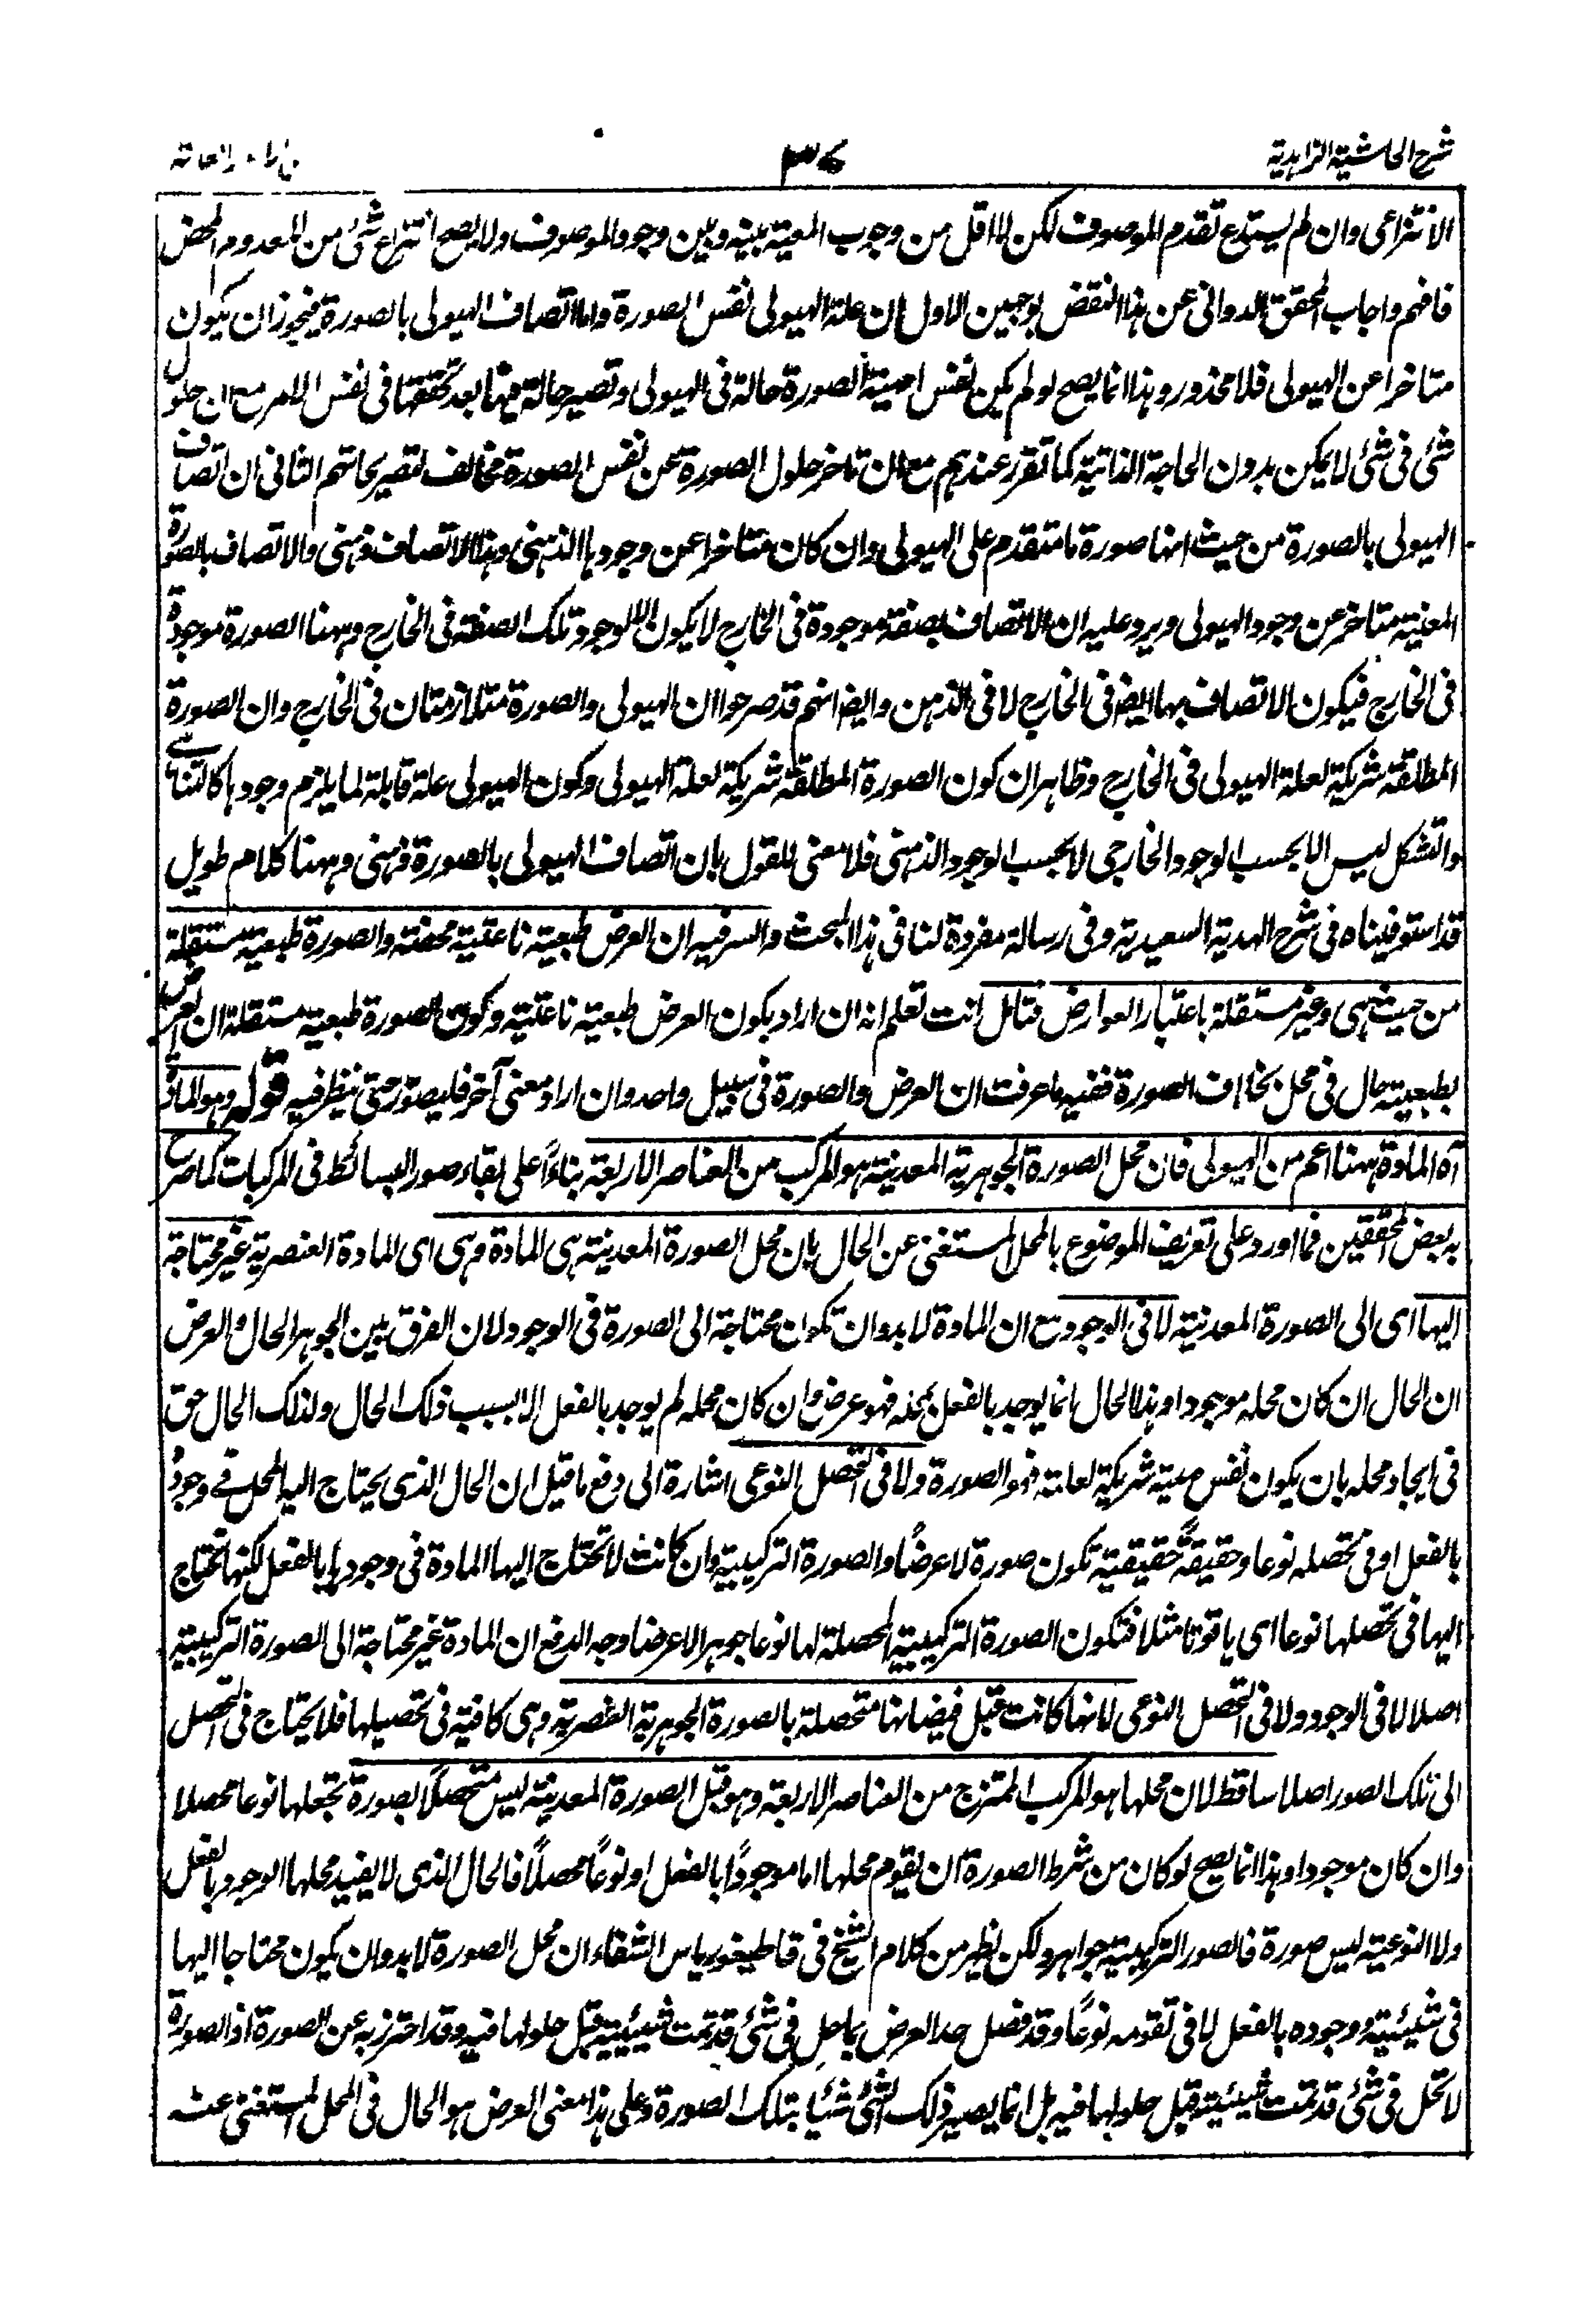 شرح الحاشية الزاهدية
٣٧
الانتزاعي وان لم يستدع تقدم الموصوف لكن لا اقل من وجوب المعية بينه وبين وجود الموصوف ولا يصح انتزاع شئ من المعدوم المحض
فافهم واجاب المحقق الدوانى عن هذا النقض بوجهين الاول ان علة الهيولى نفس الصورة واما اتصاف الهيولى بالصورة فيجوز ان يكون
متاخرا عن الهيولى فلا محذور وهذا انما يصح لو لم يكن نفس مهية الصورة حالة فى الهيولى وتصير حالة فيها بعد تحققها فى نفس الامر مع ان حلول
شئ فى شئ لا يمكن بدون الحاجة الذاتية كما تقرر عندهم مع ان تاخر حلول الصورة عن نفس الصورة مخالف لتصريحاتهم الثانى ان اتصاف
الهيولى بالصورة من حيث انها صورة ما متقدم على الهيولى وان كان متاخرا عن وجودها الذهنى وهذا الاتصاف ذهنى والاتصاف بالصورة
المعنية متاخر عن وجود الهيولى ويرد عليه ان الاتصاف بصفة موجودة فى الخارج لا يكون الا لوجود تلك الصفة فى الخارج وههنا الصورة موجودة
فى الخارج فيكون الاتصاف بها ايضا فى الخارج لا فى الذهن وايضا انهم قد صرحوا ان الهيولى والصورة متلازمتان فى الخارج وان الصورة
المطلقة شريكة لعلة الهيولى فى الخارج وظاهر ان كون الصورة المطلقة شريكة لعلة الهيولى وكون الهيولى علة قابلة لما يلزم وجودها كالتناهى
والتشكل ليس الا بحسب الوجود الخارجى لا بحسب الوجود الذهنى فلا معنى للقول بان اتصاف الهيولى بالصورة ذهنى وههنا كلام طويل
قد استوفيناه فى شرح الهدية السعيدية وفى رسالة مفردة لنا فى هذا المبحث والسر فيه ان العرض طبيعته ناعتية محضة والصورة طبعية مستقلة
من حيث هى وغير مستقلة باعتبار العوارض فتامل انت تعلم انه ان اراد بكون العرض طبعية ناعتية وكون الصورة طبعية مستقلة ان العرض
بطبعيته حال فى محل بخلاف الصورة ففيه ما عرفت ان العرض والصورة فى سبيل واحد وان اراد معنى آخر فليصوّر حتى ينظر فيه قوله وهو المادة
آه المادة ههنا اعم من الهيولى فان محل الصورة الجوهرية المعدنية هو المركب من العناصر الاربعة بناءً على بقاء صور البسائط فى المركبات كما صرح
به بعض المحققين فما اورد على تعريف الموضوع بالمحل المستغنى عن الحال بان محل الصورة المعدنية هى المادة وهى اى المادة العنصرية غير محتاجة
اليها اى الى الصورة المعدنية لا فى الوجود مع ان المادة لا بد وان تكون محتاجة الى الصورة فى الوجود لان الفرق بين الجوهر الحال والعرض
ان الحال ان كان محله موجودا وهذا الحال انما يوجد بالفعل بمحله فهو عرض وان كان محله لم يوجد بالفعل الا بسبب ذلك الحال ولذلك الحال حق
فى ايجاد محله بان يكون نفس مهيته شريكة لعلته فهو الصورة ولا فى التحصل النوعى اشارة الى دفع ما قيل ان الحال الذى يحتاج اليه المحل فى وجوده
بالفعل او فى تحصله نوعا وحقيقةً حقيقية تكون صورة لا عرضًا والصورة التركيبية وان كانت لا تحتاج اليها المادة فى وجودها بالفعل لكنها تحتاج
اليها فى تحصلها نوعا اى ياقوتا مثلا فتكون الصورة التركيبية المحصلة لها نوعا جوهرا لا عرضا وجه الدفع ان المادة غير محتاجة الى الصورة التركيبية
اصلا لا فى الوجود ولا فى التحصل النوعى لانها كانت قبل فيضانها متحصلة بالصورة الجوهرية العنصرية وهى كافية فى تحصيلها فلا يحتاج فى التحصل
الى تلك الصور اصلا ساقط لان محلها هو المركب الممتزج من العناصر الاربعة وهو قبل الصورة المعدنية ليس متحصلًا بصورة تجعلها نوعا محصلا
وان كان موجودا وهذا انما يصح لو كان من شرط الصورة ان يقوم محلها اما موجودًا بالفعل او نوعًا محصلًا فالحال الذى لا يفيد محلها الوجود بالفعل
ولا النوعية ليس صورة فالصور التركيبية جواهر ولكن يظهر من كلام الشيخ فى قاطيغورياس الشفاء ان محل الصورة لا بد وان يكون محتاجا اليها
فى شيئيته ووجوده بالفعل لا فى تقومه نوعًا وقد فصل حد العرض بما حل فى شئ قد تمت شيئيته قبل حلولها فيه وقد احترز به عن الصورة اذ الصورة
لا تحل فى شئ قد تمت شيئيته قبل حلولها فيه بل انما يصير ذلك الشئ شيئا بتلك الصورة وعلى هذا معنى العرض هو الحال فى المحل المستغنى عنه